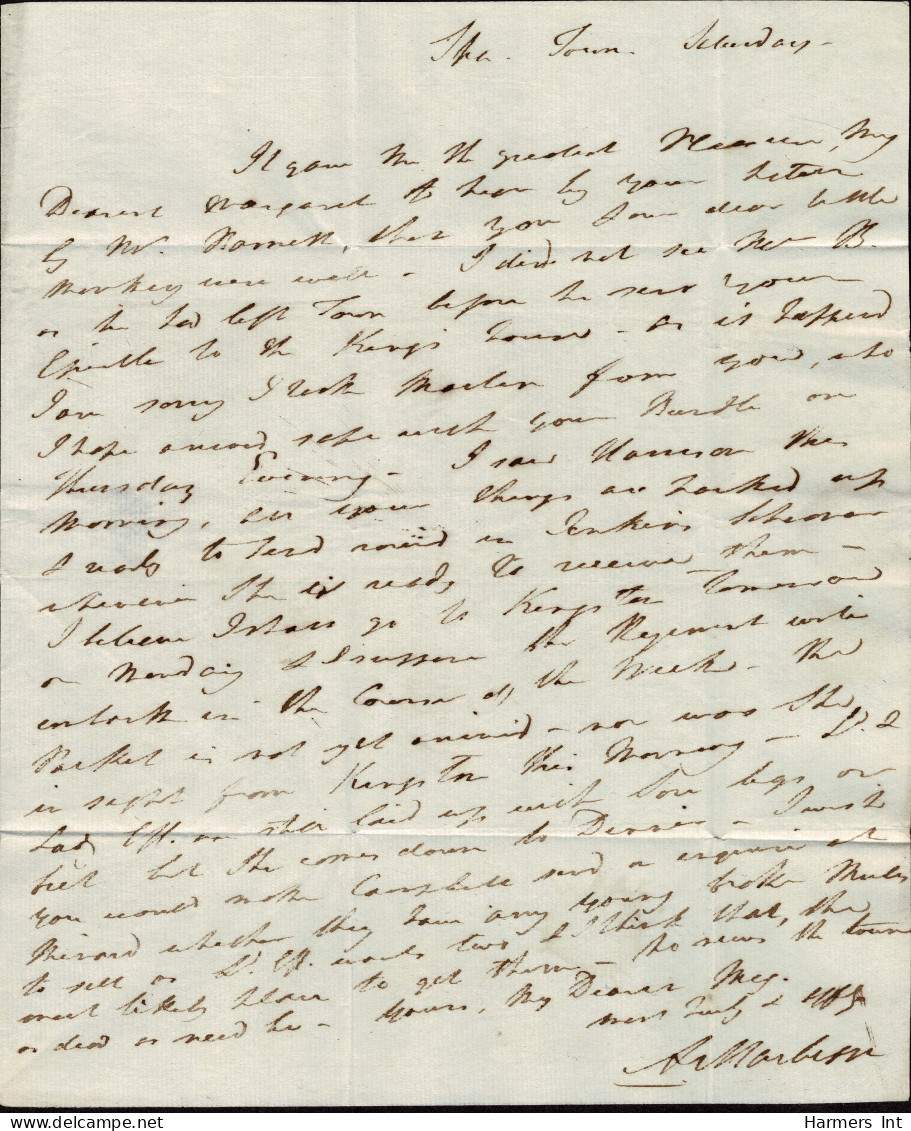 Spa. Town. Saturday -
It gave me the greatest Pleasure, My
Dearest Margaret to hear by your letter
by Mr. Barnett, that you & our dear little
Monkey were well - I did not see Mr. B.
as he had left Town before he sent your
Epistle to the King's House - as it happend
I am sorry I took from you, who
I hope arrived safe with your Bundle on
Thursday Evening - I saw Harrison this
Morning, all your things are packed up
& ready to send round in Jenkins's Schooner
whenever She is ready to receive them -
I believe I shall go to Kingston tomorrow
or Monday & I suppose the Regiment will
embark in the Course of the Week - The
Packet is not yet arrived - nor was She
in sight from Kingston this Morning - Ld. &
Lady Eff. are still laid up with sore legs or
feet but She comes down to Dinner - I wish
you would make Campbell send & enquire at
whether they have any young broke Mules
to sell as Ld. Eff. wants two & I think that, the
most likely place to get them - No news the town
as dead as need be - Yours, My Dearest Meg.
most truly & affy